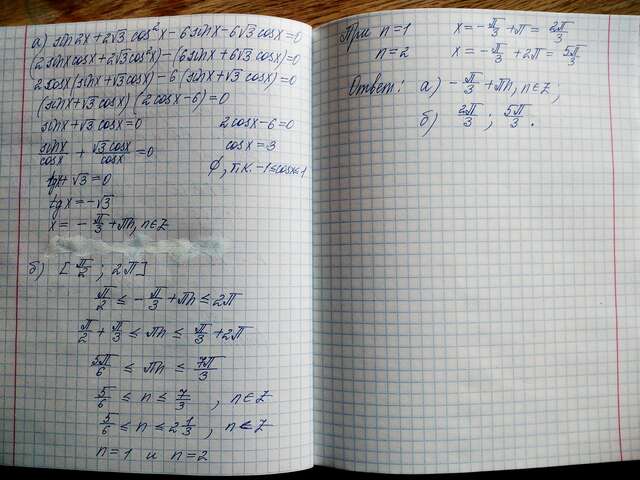 а) sin2x+2√3 cos²x-6sinx-6√3 cosx=0
(2sinxcosx+2√3cos²x)-(6sinx+6√3cosx)=0
2cosx(sinx+√3cosx)-6(sinx+√3cosx)=0
(sinx+√3cosx)(2cosx-6)=0
sinx+√3cosx=0 2cosx-6=0
sinx/cosx + √3cosx/cosx =0 cosx=3
tgx+√3=0 ∅, т.к. -1≤cosx≤1
tgx=-√3
x= -π/3+πn, n∈Z
б) [π/2; 2π]
π/2 ≤ -π/3+πn ≤ 2π
π/2 + π/3 ≤ πn ≤ π/3+2π
5π/6 ≤ πn ≤ 7π/3
5/6 ≤ n ≤ 7/3, n∈Z
5/6 ≤ n ≤ 2 1/3, n∈Z
n=1 и n=2
При n=1 x=-π/3+π= 2π/3
n=2 x=-π/3+2π= 5π/3
Ответ: а) -π/3+πn, n∈Z,
б) 2π/3; 5π/3.